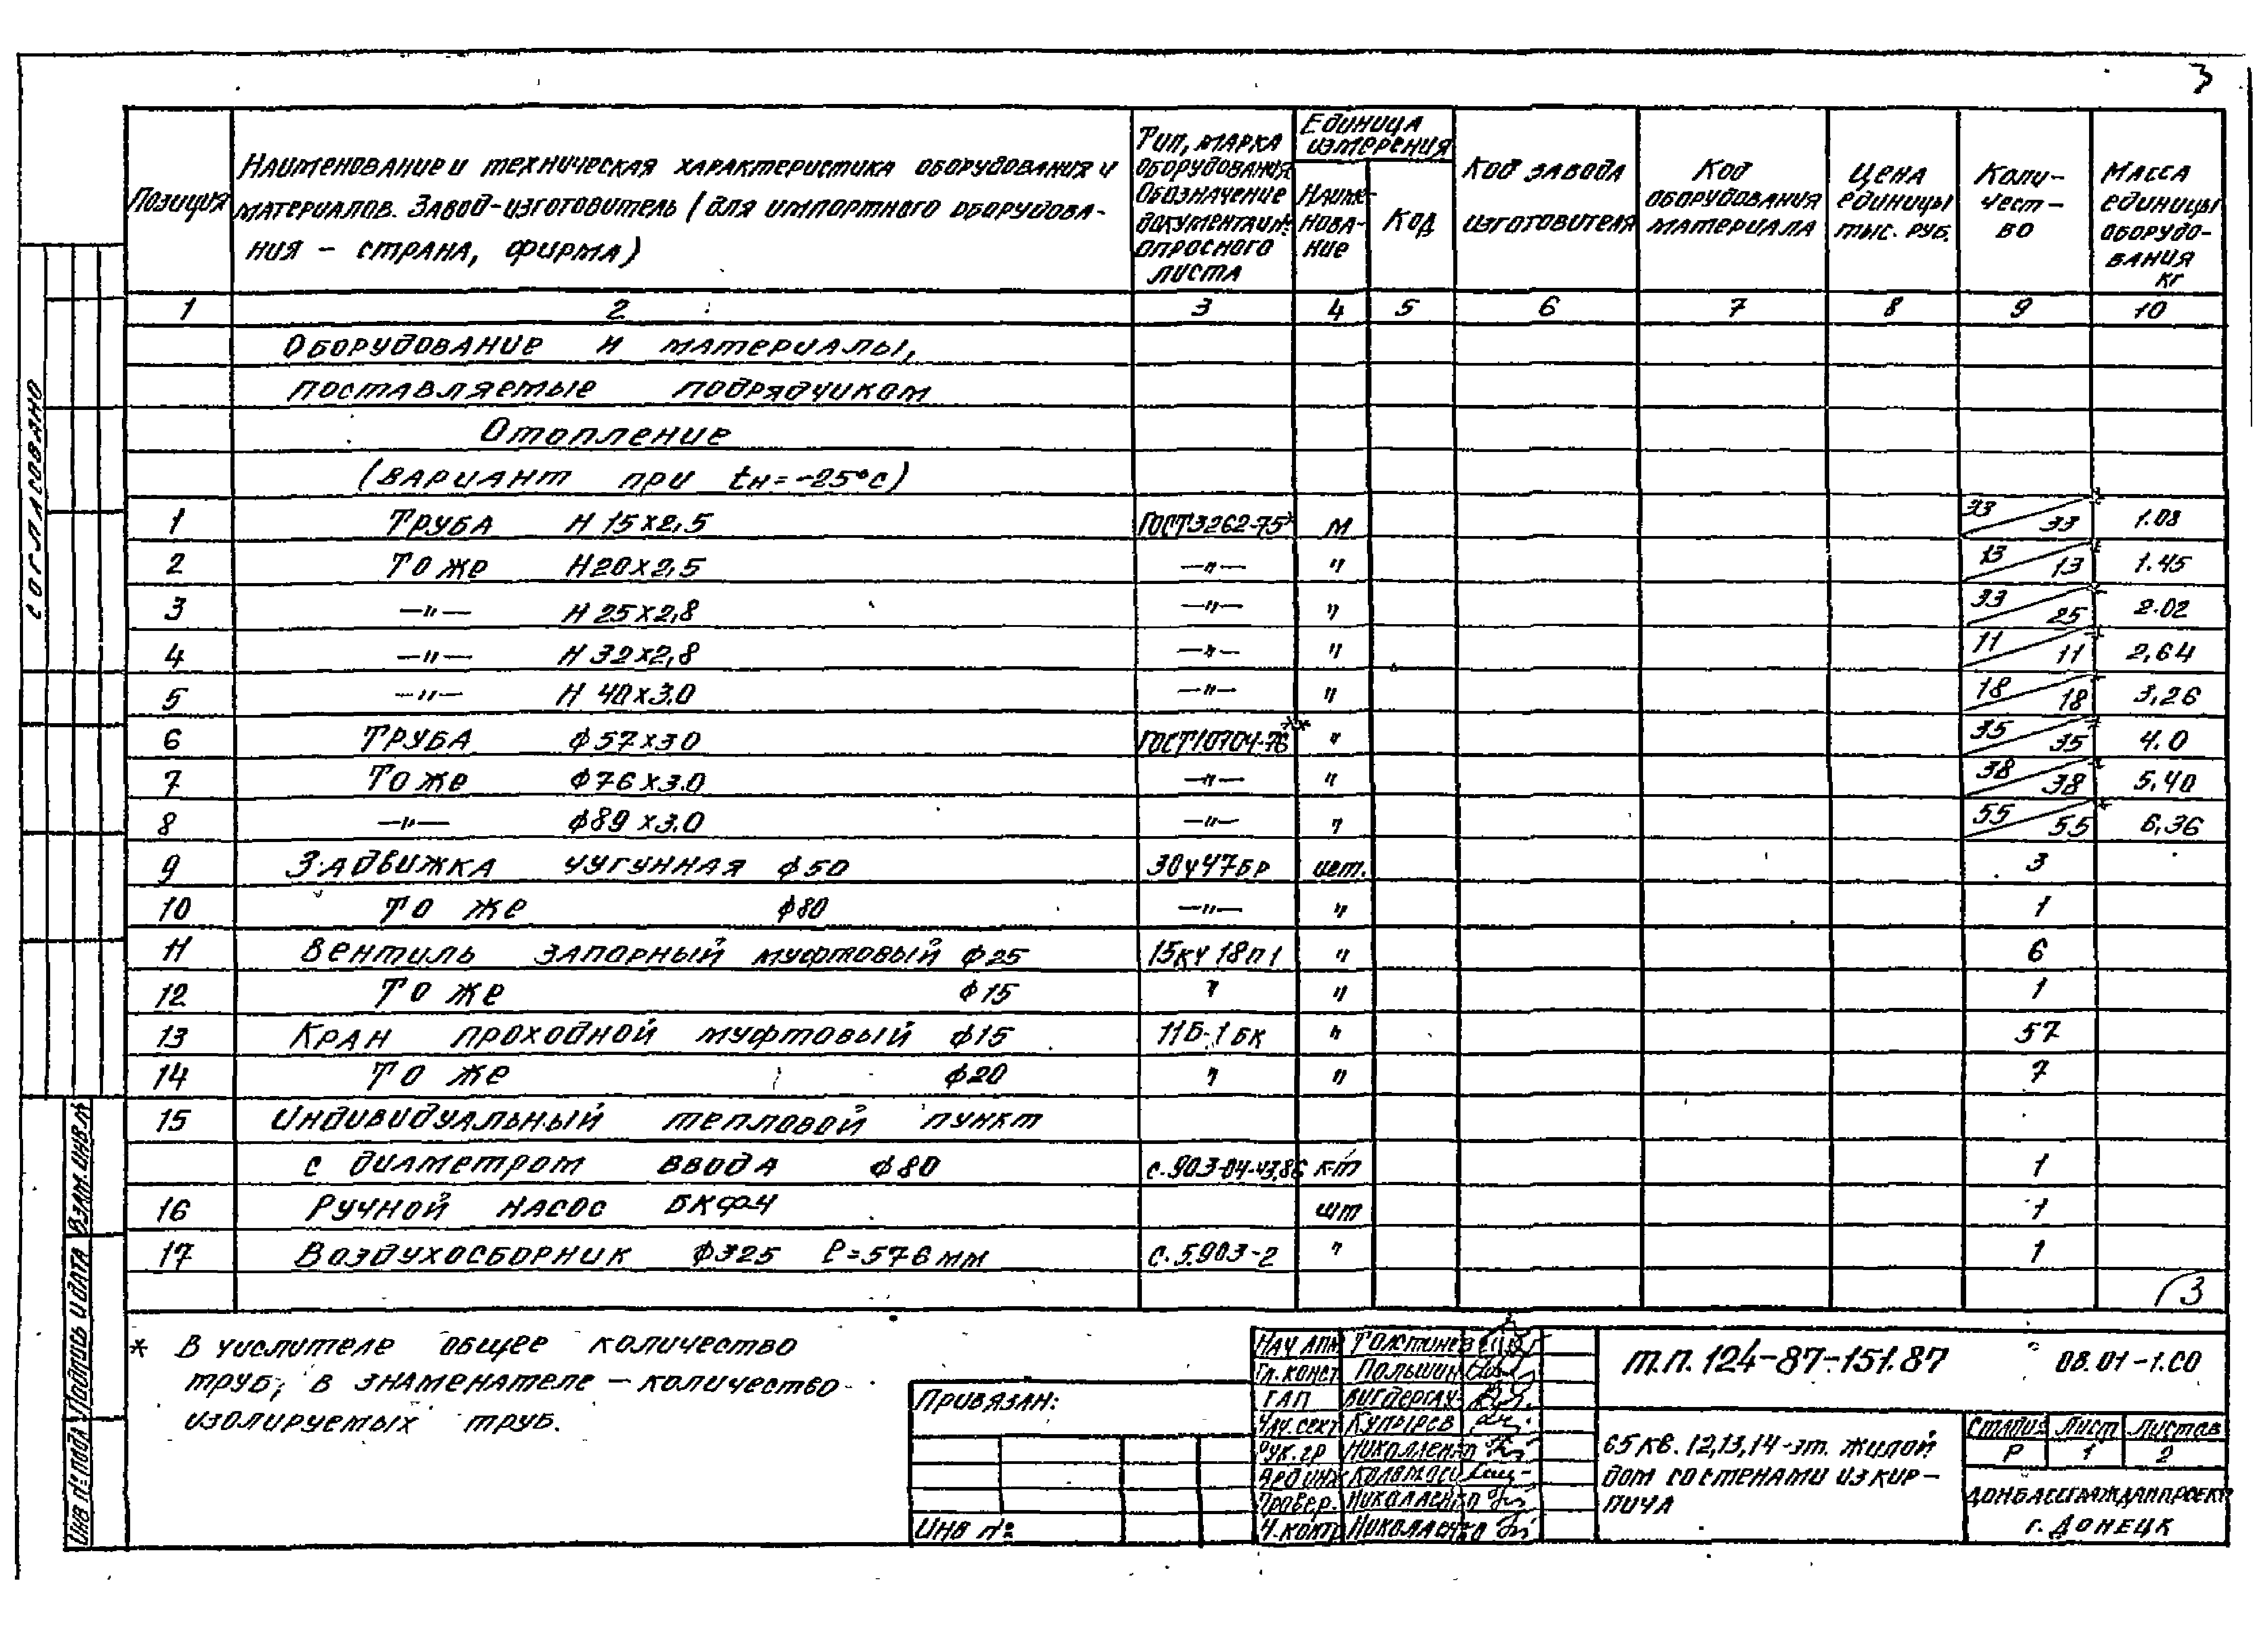 3
Позиция | Наименование и техническая характеристика оборудования и материалов. Завод-изготовитель (для импортного оборудования – страна, фирма) | Тип, марка оборудования Обозначение документации опросного листа | Единица измерения: Наименование | Код | Код завода изготовителя | Код оборудования материала | Цена единицы тыс. руб. | Количество | Масса единицы оборудования кг
1 2 3 4 5 6 7 8 9 10
Оборудование и материалы,
поставляемые подрядчиком
Отопление
(вариант при tн=-25°С)
1 Труба Н 15х2,5 ГОСТ 3262-75* м 33/33 * 1.08
2 То же Н20х2,5 —"— " 13/13 * 1.45
3 —"— Н 25х2,8 —"— " 33/25 * 2.02
4 —"— Н 32х2,8 —"— " 11/11 * 2,64
5 —"— Н 40х3.0 —"— " 18/18 * 3,26
6 Труба ф57х30 ГОСТ10704-76** " 35/35 * 4.0
7 То же ф76х3.0 —"— " 38/38 * 5,40
8 —"— ф89х3.0 —"— " 55/55 * 6,36
9 Задвижка чугунная ф50 30ч47бр шт. 3
10 То же ф80 —"— " 1
11 Вентиль запорный муфтовый ф25 15кч 18п1 " 6
12 То же ф15 " " 1
13 Кран проходной муфтовый ф15 11Б-1бк " 57
14 То же ф20 " " 7
15 Индивидуальный тепловой пункт
с диаметром ввода ф80 с.903-04-43,86 к-т 1
16 Ручной насос БКФ-4 шт 1
17 Воздухосборник ф325 ℓ=576мм с.5.903-2 " 1
3
* В числителе общее количество
труб, в знаменателе – количество
изолируемых труб.
Согласовано
Взам. инв. №
Подпись и дата
Инв № подл
Привязан:
Инв №
Нач АПМ
Гл. конст. Польшин
ГАП Вигдергауз
Нач. сект Купырев
Рук. гр Николаенко
Вед инж
Провер. Николаенко
Н. контр Николаенко
т.п. 124-87-151.87 08.01-1.СО
65 кв. 12,13,14-эт. жилой
дом со стенами из кир-
пича
Стадия Лист Листов
Р 1 2
Донбассгражданпроект
г. Донецк